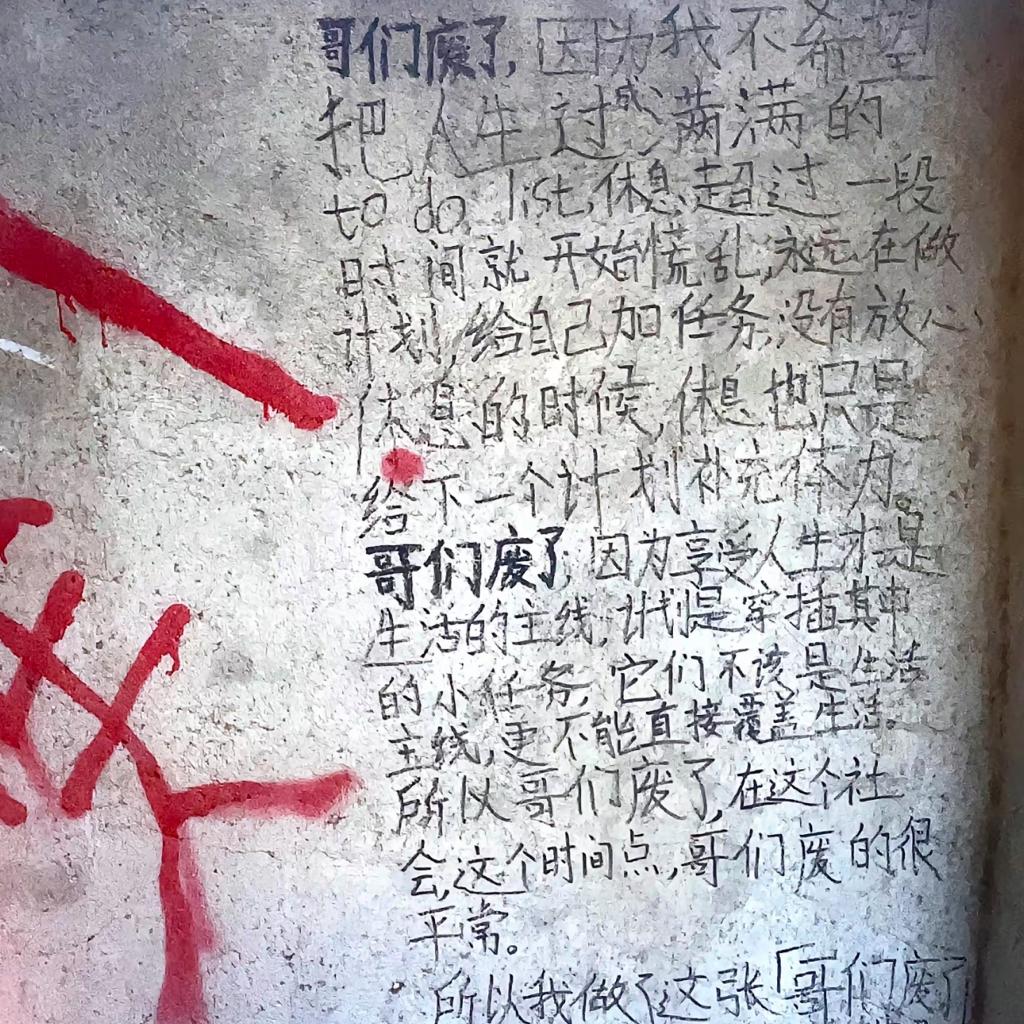 哥们废了,因为我不希望
把人生过成满满的
to do list,休息超过一段
时间就开始慌乱,永远在做
计划,给自己加任务,没有放心
休息的时候,休息也只是
给下一个计划补充体力。
哥们废了,因为享受人生才是
生活的主线,计划是穿插其中
的小任务,它们不该是生活
主线,更不能直接覆盖生活。
所以哥们废了,在这个社
会,这个时间点,哥们废的很
平常。
所以我做了这张「哥们废了